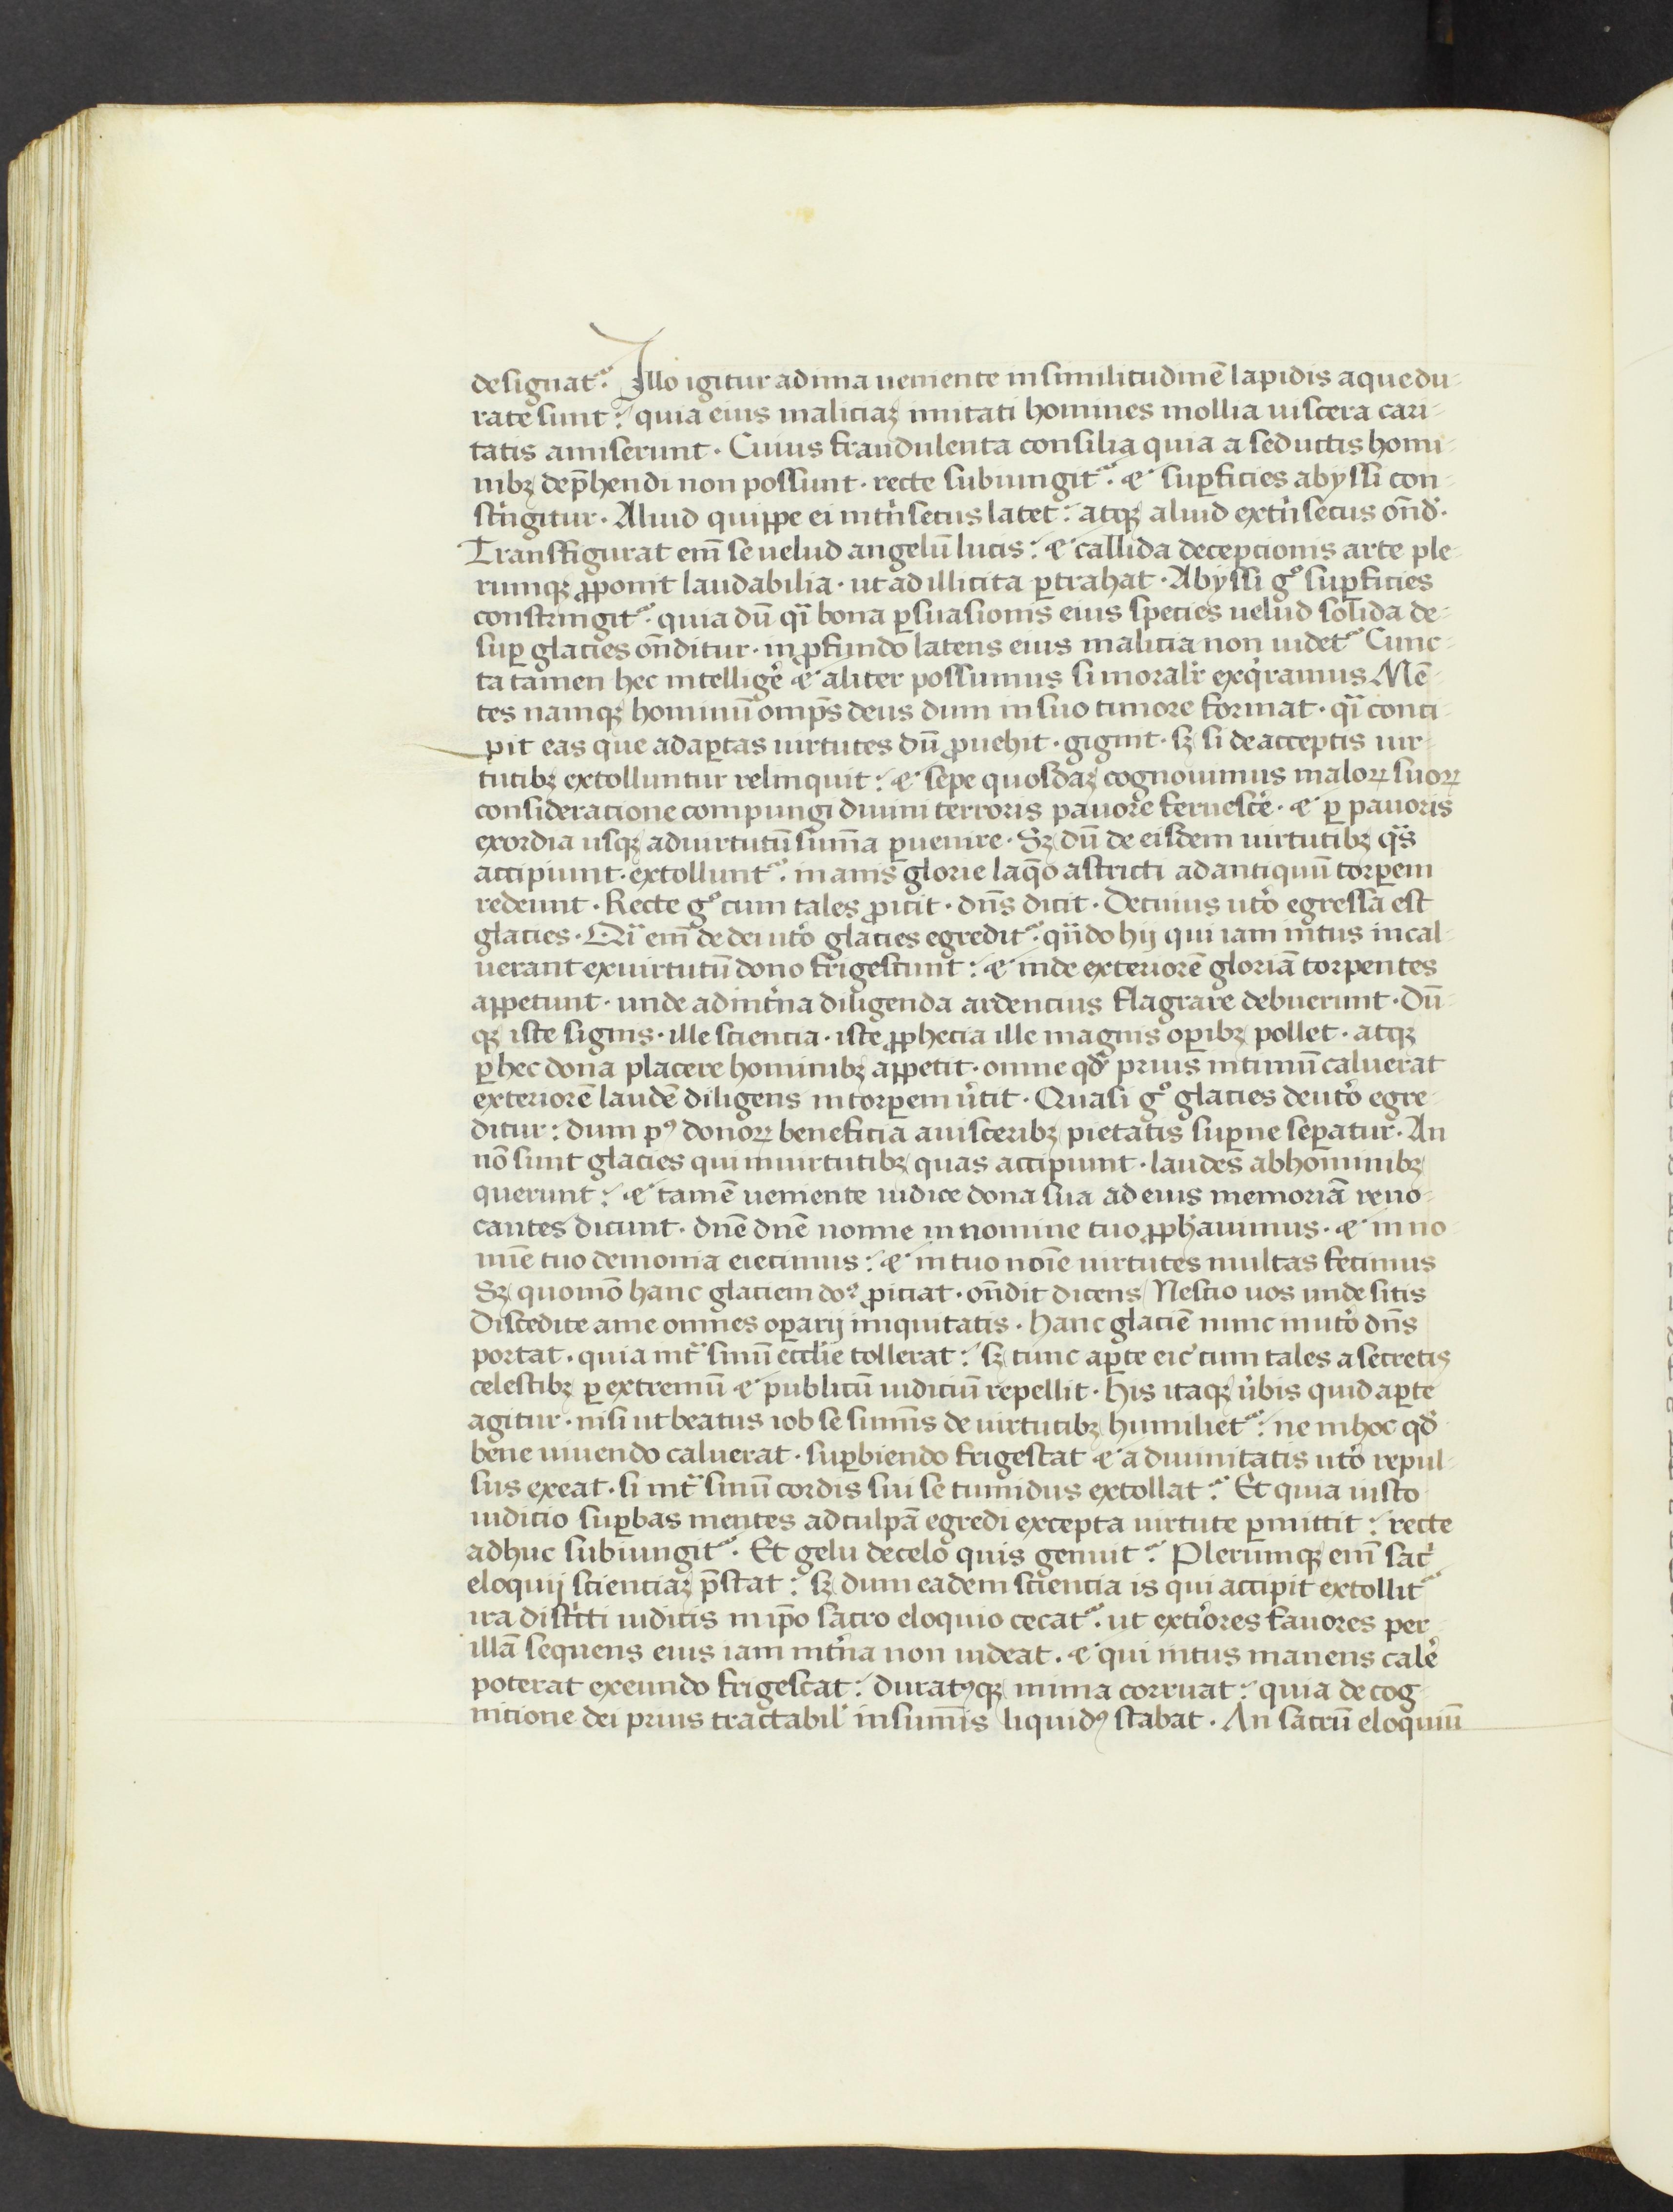 designat᷑. Illo igitur ad ima ueniente in similitudinē lapidis aque du-
rate sunt: quia eius maliciaꝫ imitati homines mollia uiscera cari-
tatis amiserunt. Cuius fraudulenta consilia quia a seductis homi-
nibꝫ dep̄hendi non possunt. recte subiungit᷑. ⁊ suꝑficies abyssi con-
stͥngitur. Aliud quippe ei intͥnsecus latet: atqꝫ aliud extͥnsecus on̄d᷑.
Transfigurat em̄ se uelud angelū lucis: ⁊ callida decepcionis arte ple-
rumqꝫ ꝓponit laudabilia. ut ad illicita ꝑtrahat. Abyssi gͦ suꝑficies
constringit᷑. quia dū qͣi bona ꝑsuasionis eius species uelud solida de-
suꝑ glacies on̄ditur. in ꝓfundo latens eius malicia non uidet᷑ Cunc-
ta tamen hec intellige᷑ ⁊ aliter possumus si moralr᷑ exqͥramus Mē-
tes namqꝫ hominū omp̄s deus dum in suo timore format. qͣi conci-
pit eas que ad aꝑtas uirtutes dū ꝓuehit. gignit. sꝫ si de acceptis uir-
tutibꝫ extolluntur relinquit: ⁊ sepe quosdaꝫ cognouimus maloꝝ suoꝝ
consideracione compungi diuini terroris pauore feruesce᷑. ⁊ ꝑ pauoris
exordia usqꝫ ad uirtutū sum̄a ꝑuenire. Sꝫ dū de eisdem uirtutibꝫ qͣs
accipiunt. extollunt᷑. inanis glorie laq̄o astricti ad antiquū torꝑem
redeunt. Recte gͦ cum tales ꝓicit. dn̄s dicit. De cuius ut᷑o egressa est
glacies. Qͣi em̄ de dei ut᷑o glacies egredit᷑. qn̄do hij qui iam intus incal-
uerant ex uirtutū dono frigescunt: ⁊ inde exteriorē gloriā torpentes
appetunt. unde ad int᷑na diligenda ardencius flagrare debuerunt. Dū-
qꝫ iste signis. ille sciencia. iste ꝓphecia ille magnis oꝑibꝫ pollet. atqꝫ
ꝑ hec dona placere hominibꝫ appetit. omne qd᷑ prius intimū caluerat
exteriorē laudē diligens in torꝑem u᷑tit. Quasi gͦ glacies de ut᷑o egre-
ditur: dum pꝰ donoꝝ beneficia a uisceribꝫ pietatis suꝑne seꝑatur. An
nō sunt glacies qui in uirtutibꝫ quas accipiunt. laudes ab hominibꝫ
querunt: ⁊ tamē ueniente iudice dona sua ad eius memoriā reuo-
cantes dicunt. dn̄e dn̄e nonne in nomine tuo ꝓph̄auimus. ⁊ in no-
mīe tuo demonia eiecimus: ⁊ in tuo noīe uirtutes multas fecimus
Sꝫ quomō hanc glaciem do᷑ ꝓiciat. on̄dit dicens Nescio uos unde sitis
Discedite a me omnes oꝑarij iniquitatis. Hanc glaciē nunc in ut᷑o dn̄s
portat. quia intͣ sinū eccl̄ie tollerat: sꝫ tunc aꝑte eic᷑ cum tales a secretis
celestibꝫ ꝑ extremū ⁊ publicū iudiciū repellit. His itaqꝫ u᷑bis quid aꝑte
agitur. nisi ut beatus iob se sum̄is de uirtutibꝫ humiliet᷑: ne in hoc qd᷑
bene uiuendo caluerat. suꝑbiendo frigescat ⁊ a diuinitatis ut᷑o repul-
sus exeat. si intͣ sinū cordis sui se tumidus extollat: Et quia iusto
iudicio suꝑbas mentes ad culpā egredi ex cepta uirtute ꝑmittit: recte
adhuc subiungit᷑. Et gelu de celo quis genuit: Plerumqꝫ em̄ sac᷑
eloquij scienciaꝫ p̄stat: sꝫ dum eadem sciencia is qui accipit extollit᷑
ira distͥcti iudicis in ip̄o sacro eloquio cecat᷑. ut ext᷑iores fauores per
illā sequens eius iam int᷑na non uideat. ⁊ qui intus manens cale᷑
poterat exeundo frigescat: duratꝰqꝫ in ima corruat: quia de cog-
nicione dei prius tractabil᷑ in sum̄is liquidꝰ stabat. An sacrū eloquiū